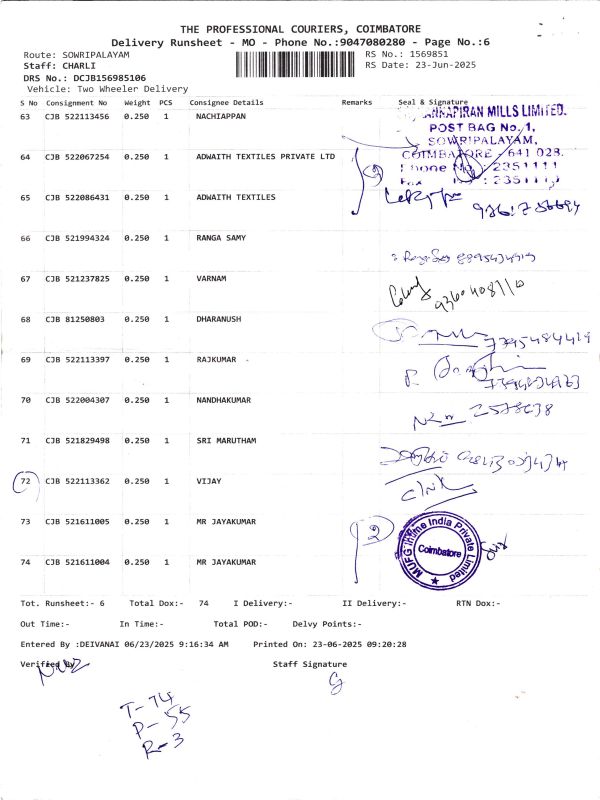 THE PROFESSIONAL COURIERS, COIMBATORE
Delivery Runsheet - MO - Phone No.:9047080280 - Page No.:6
Route: SOWRIPALAYAM
RS No.: 1569851
Staff: CHARLI
RS Date: 23-Jun-2025
DRS No.: DCJB156985106
Vehicle: Two Wheeler Delivery
S No Consignment No Weight PCS Consignee Details Remarks Seal & Signature
63 CJB 522113456 0.250 1 NACHIAPPAN
MILLS LIMITED.
POST BAG No. 1,
SOWRIPALAYAM,
64 CJB 522067254 0.250 1 ADWAITH TEXTILES PRIVATE LTD
COIMBATORE - 641 028.
Phone No. : 2351111
65 CJB 522086431 0.250 1 ADWAITH TEXTILES
66 CJB 521994324 0.250 1 RANGA SAMY
67 CJB 521237825 0.250 1 VARNAM
68 CJB 81250803 0.250 1 DHARANUSH
69 CJB 522113397 0.250 1 RAJKUMAR
70 CJB 522004307 0.250 1 NANDHAKUMAR
71 CJB 521829498 0.250 1 SRI MARUTHAM
72 CJB 522113362 0.250 1 VIJAY
73 CJB 521611005 0.250 1 MR JAYAKUMAR
2
India Private Limited
Coimbatore
74 CJB 521611004 0.250 1 MR JAYAKUMAR
Tot. Runsheet:- 6 Total Dox:- 74 I Delivery:- II Delivery:- RTN Dox:-
Out Time:- In Time:- Total POD:- Delvy Points:-
Entered By :DEIVANAI 06/23/2025 9:16:34 AM Printed On: 23-06-2025 09:20:28
Verified By Staff Signature
T-74
P-55
R-3